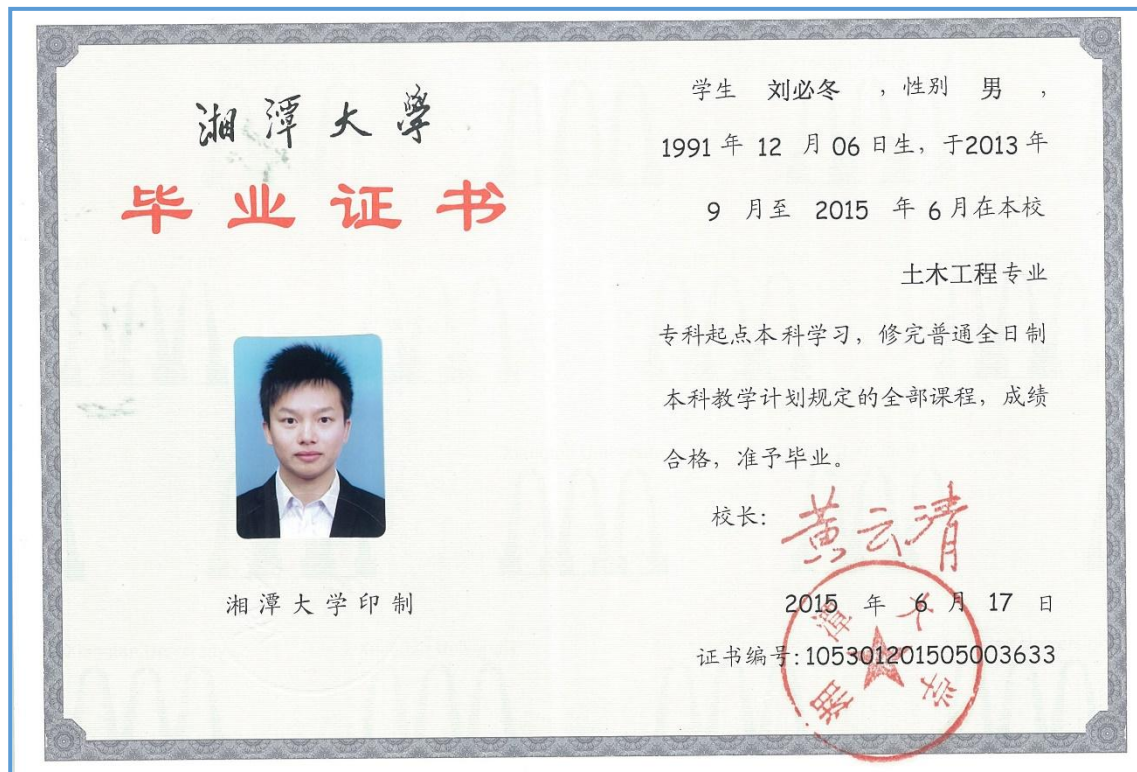 湘潭大学
毕业证书
湘潭大学印制
学生 刘必冬 ，性别 男 ，
1991 年 12 月 06 日生，于2013 年
9 月至 2015 年 6 月在本校
土木工程专业
专科起点本科学习，修完普通全日制
本科教学计划规定的全部课程，成绩
合格，准予毕业。
校长：黄云清
2015 年 6 月 17 日
证书编号：105301201505003633
湘潭大学